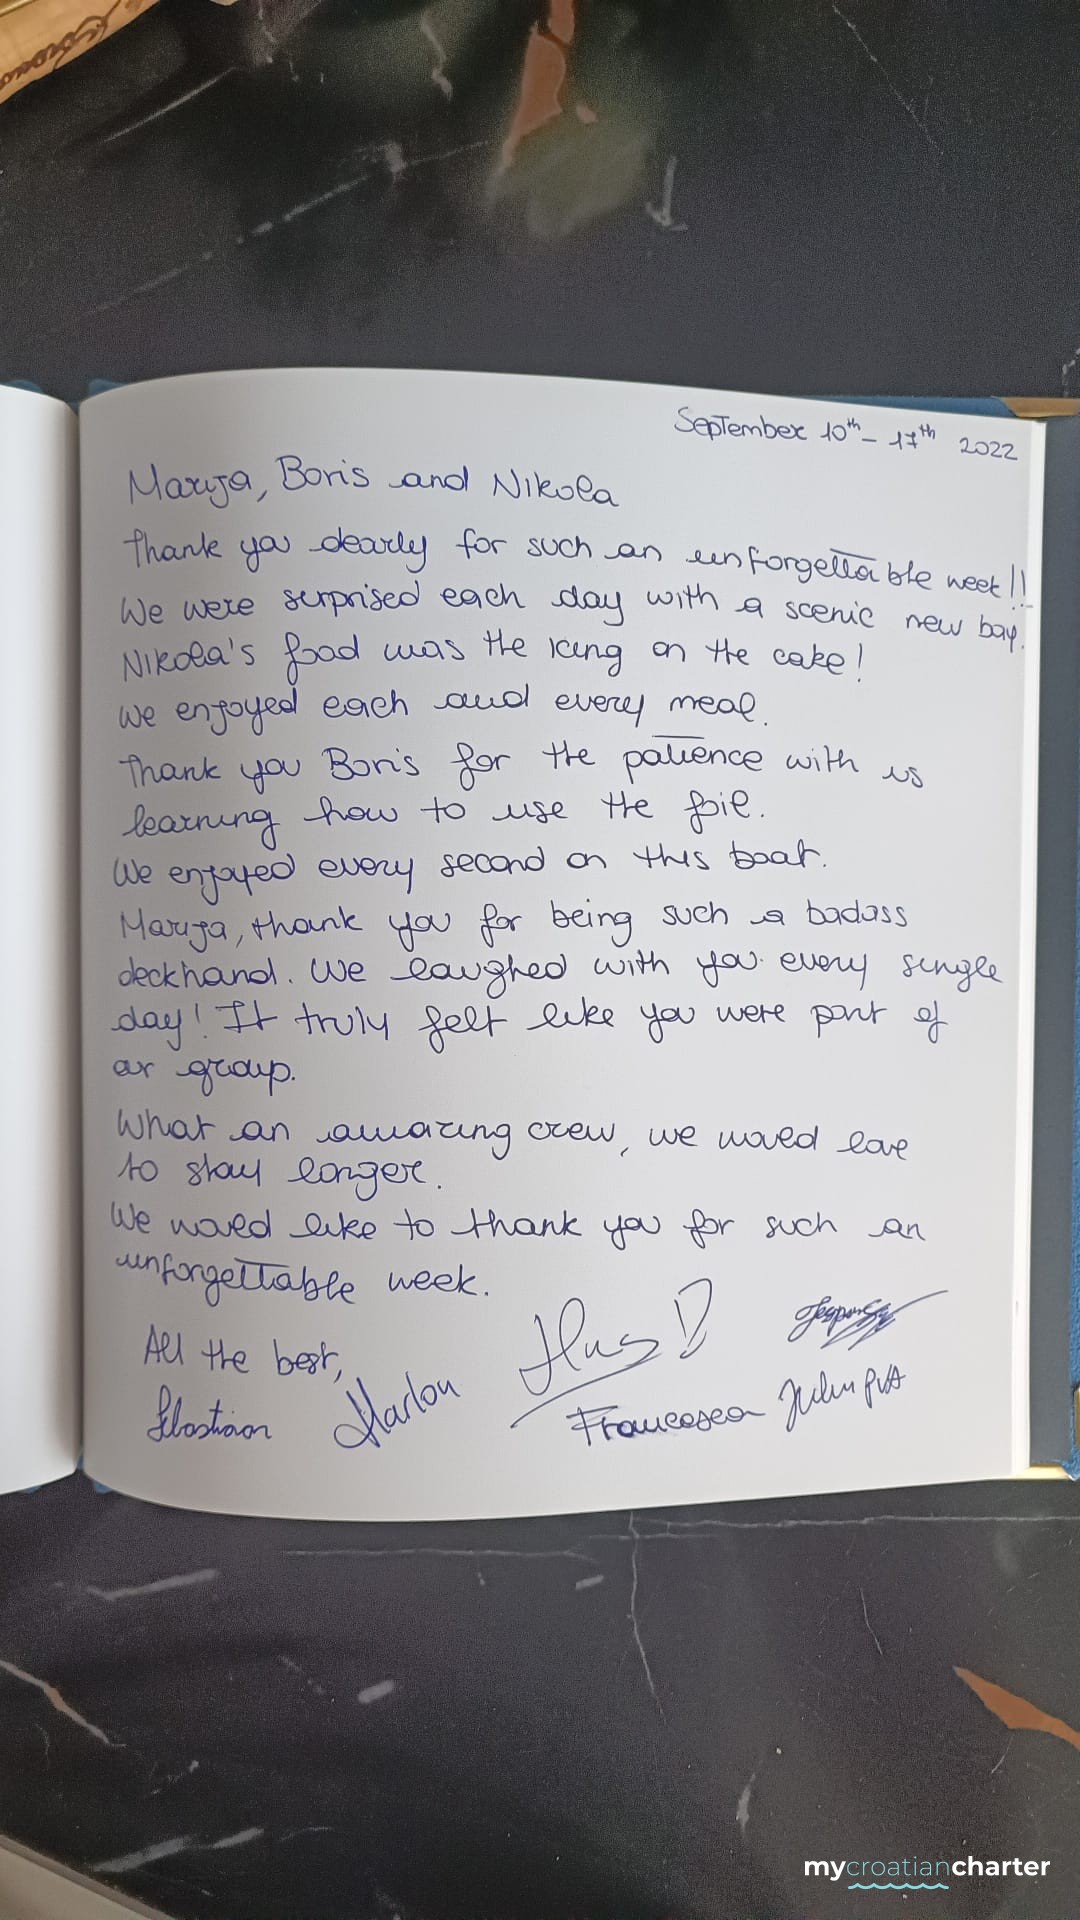 September 10th - 17th 2022
Marija, Boris and Nikola
Thank you dearly for such an unforgettable week!!
We were surprised each day with a scenic new bay.
Nikola's food was the icing on the cake!
We enjoyed each and every meal.
Thank you Boris for the patience with us
learning how to use the foil.
We enjoyed every second on this boat.
Marija, thank you for being such a badass
deckhand. We laughed with you every single
day! It truly felt like you were part of
our group.
What an amazing crew, we would love
to stay longer.
We would like to thank you for such an
unforgettable week.
All the best,
Sebastiaan Marlou Francesca
mycroatiancharter